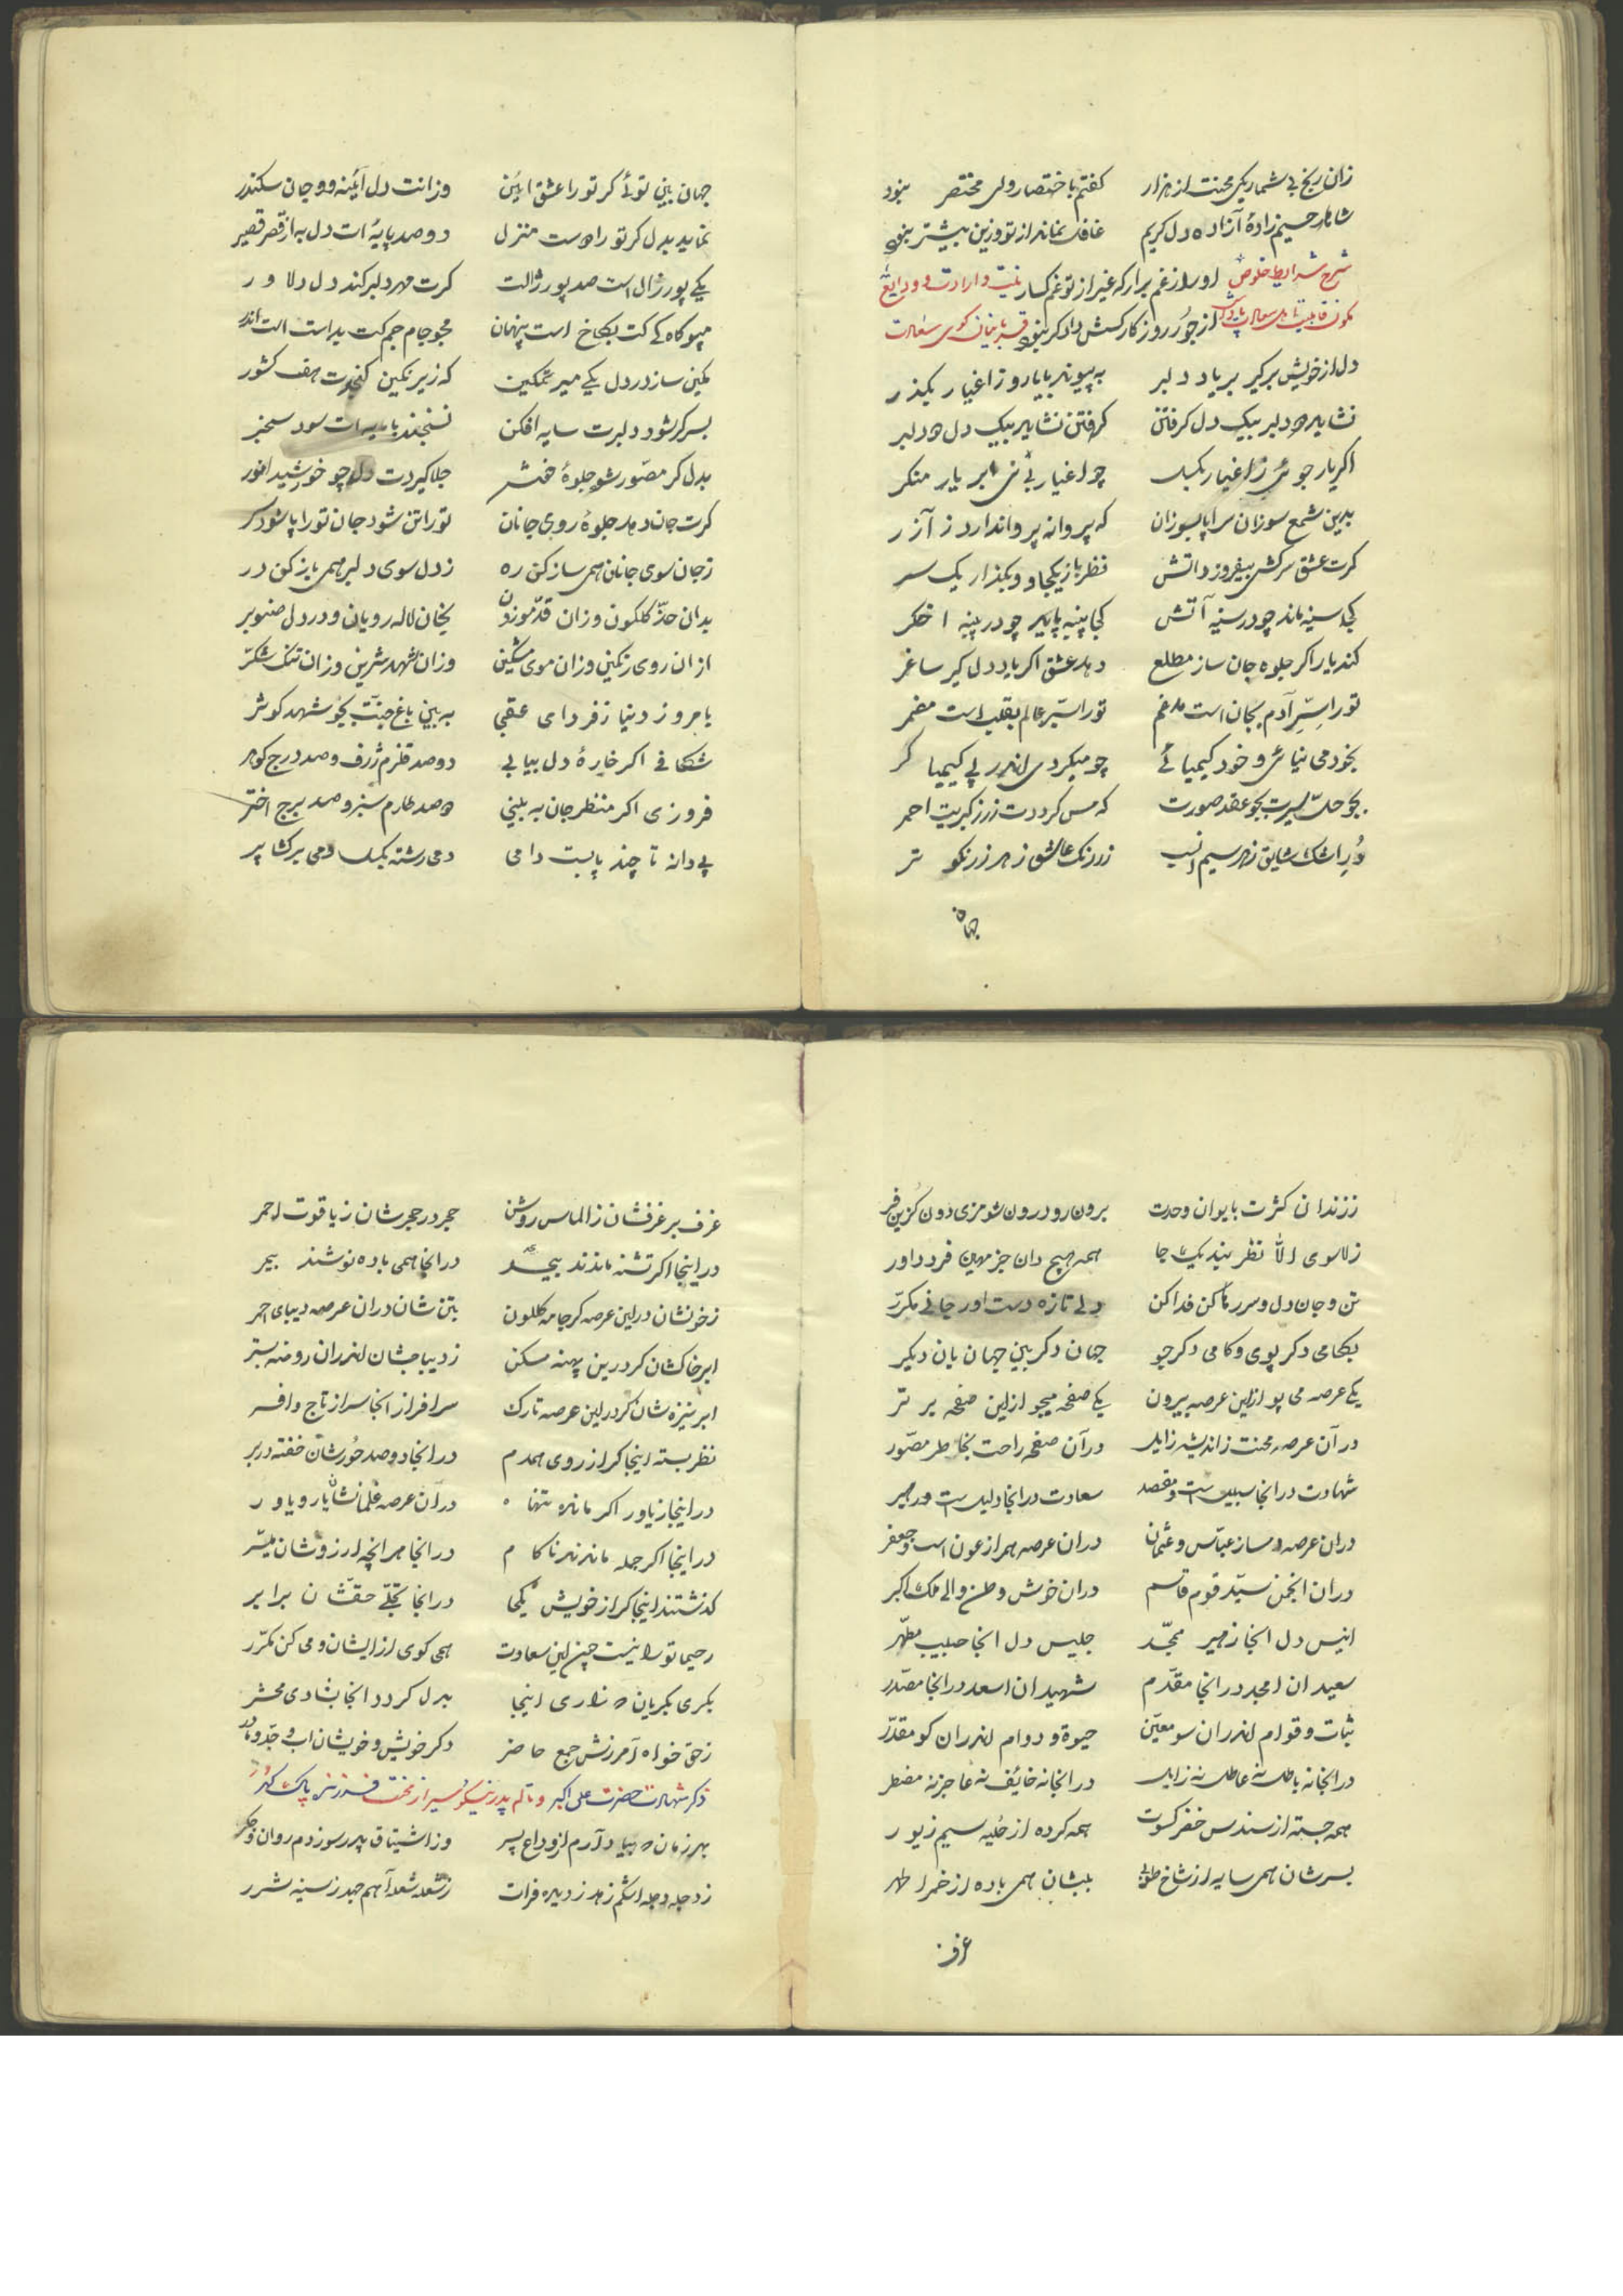 زان رنج بی شمار یکی محنت از هزار کفتم باختصار ولی مختصر نبود
شاها رحیم زادهٔ آزاده دل کریم غافل نماند از تو وزین بیشتر نبود
شرح شرایط خلوص او را ز غم برار که غیر از تو غم کسار نیت و ارادت و ودایع
از جور روزکار کسش دادکر نبود
دل از خویش برکیر بر یاد دلبر به پیوند با یار و ز اغیار بکذر
نشاید دو دلبر بیک دل کرفتن کرفتن نشاید بیک دل دو دلبر
اکر یار جوئی ز اغیار بکسل چو اغیار بر یار منکر
بدین شمع سوزان سراپا بسوزان که پروانه پروا ندارد ز آزر
کرت عشق سرکش بیفروزد آتش نظر باز یکجا و بکذار یک سر
کجا سینه ماند چو در سینه آتش کجا پنبه پاید چو در پنبه اخکر
کند یار اکر جلوه جان ساز مطلع دهد عشق اکر باده دل کیر ساغر
تو را سرّ آدم بجان است مدغم تو را سرّ عالم بقلب است مضمر
بخود می نیائی و خود کیمیائی چو میکردی اندر پی کیمیا کر
بجو حلّ سیرت بجو عقد صورت که مس کرددت زر ز کبریت احمر
دُرِ اشک شایق ز هر سیم انسب زر رنک عاشق ز هر زر نکوتر
جهان
جهان بین توئی کر تو را عشق ایین وزانت دل آئینه و جان سکندر
نماید بدل کر تو را دوست منزل دو صد پایه ات دل به از قصر قیصر
یکی پور زال است صد پور زالت کرت مهر دلبر کند دل دلاور
مپو کاه کی کت بکاخ است پنهان مجو جام جم کت بدست است اندر
مکین ساز در دل یکی میر تمکین که زیر نکین کنجدت هفت کشور
بسر کر شود دلبرت سایه افکن نسنجند با سایه ات سود سنجر
بدل کر مصّور شود جلوهٔ خش جلا کیردت دل چو خورشید انور
کرت جان دهد جلوهٔ روی جانان تو را تن شود جان تو را پا شود سر
ز جان سوی جانان همی ساز کن ره ز دل سوی دلبر همی باز کن در
بدان خدّ کلکون وزان قدّ موزون بجان لاله رویان و در دل صنوبر
ازان روی رنکین وزان موی مشکین وزان شهد شرین وزان تنک شکّر
بامروز دنیا ز فردای عقبی به بین باغ جنّت بجو شهد کوثر
شکافی اکر خارهٔ دل بیابی دو صد قلزم ژرف و صد درج کوهر
فروزی اکر منظر جان به بینی دو صد طارم سبز و صد برج اختر
پی دانه تا چند پابست دامی دمی رشته بکسل دمی برکشا پر
ز زندان کثرت بایوان وحدت برون رو درون شو مزی دون کزین فر
ز لا سوی الّا نظر بند یک جا همه هیچ دان جز مهین فرد داور
تن و جان دل و سر رها کن فدا کن دلی تازه دست اور جانی مکرّر
بکامی دکر پوی و کامی دکر جو جهان دکر بین جهانبان دیکر
یکی عرصه می پو ازین عرصه بیرون یکی صفحه میجو ازین صفحه برتر
در آن عرصه محنت ز اندیشه زایل در آن صفحه راحت بخاطر مصّور
شهادت در انجا سبیل است و مقصد سعادت در انجا دلیل است و رهبر
دران عرصه دمساز عبّاس و عثمان دران عرصه همراز عون است و جعفر
دران انجمن سیّد قوم قاسم دران خوش وطن والی ملک اکبر
انیس دل انجا زهیر ممجّد جلیس دل انجا حبیب مطهّر
سعیدان امجد در انجا مقدّم شهیدان اسعد در انجا مصدّر
ثبات و قوام اندران سو معیّن حیوة و دوام اندران کو مقدّر
در انجا نه باطل نه عاطل نه زایل در انجا نه خائف نه عاجز نه مضطر
همه جسته از سندس خضر کسوت همه کرده از حُلیه سیم زیور
بسرشان همی سایه از شاخ طوبی بلبشان همی باده از خمر اطهر
غرف
غرف بر غرفشان ز الماس روشن حجر در حجرشان ز یاقوت احمر
در اینجا اکر تشنه ماندند بیحد در انجا همی باده نوشند بیمر
ز خونشان در این عرصه کر جامه کلکون بتن شان دران عرصه دیبای احمر
ابر خاکشان کر درین پهنه مسکن ز دیبا جشان اندران روضه بستر
ابر نیزه شان کر در این عرصه تارک سرافراز انجا سر از تاج و افسر
نظر بسته اینجا کر از روی همدم در انجا دو صد حُورشان خفته در بر
در اینجا ز یاور اکر مانده تنها در ان عرصه غلمانشان یار و یاور
در اینجا اکر جمله ماندند ناکام در انجا هر انچه ارزوشان میّسر
کذشتند اینجا کر از خویش یکجا در انجا تجلّی حقشان برابر
رحیما تو را نیست چین این سعادت همی کوی از ایشان و می کن مکرّر
بکری بکریان بزاری اینجا بدل کردد انجا بشادی محشر
ز حق خواه آمرزش جمع حاضر دکر خویش و خویشان اب و جدّ و مادر
ذکر شهادت حضرت علی اکبر و تالم پدر نیکو سیر از محنت فرزند پاک کهر
بهر زمان بیاد آرم از وداع پسر وز اشتیاق پدر سوزدم روان و جکر
ز دجله دجله اشکم زهد ز دیده فرات ز شعله شعله آهم جهد ز سینه شرر